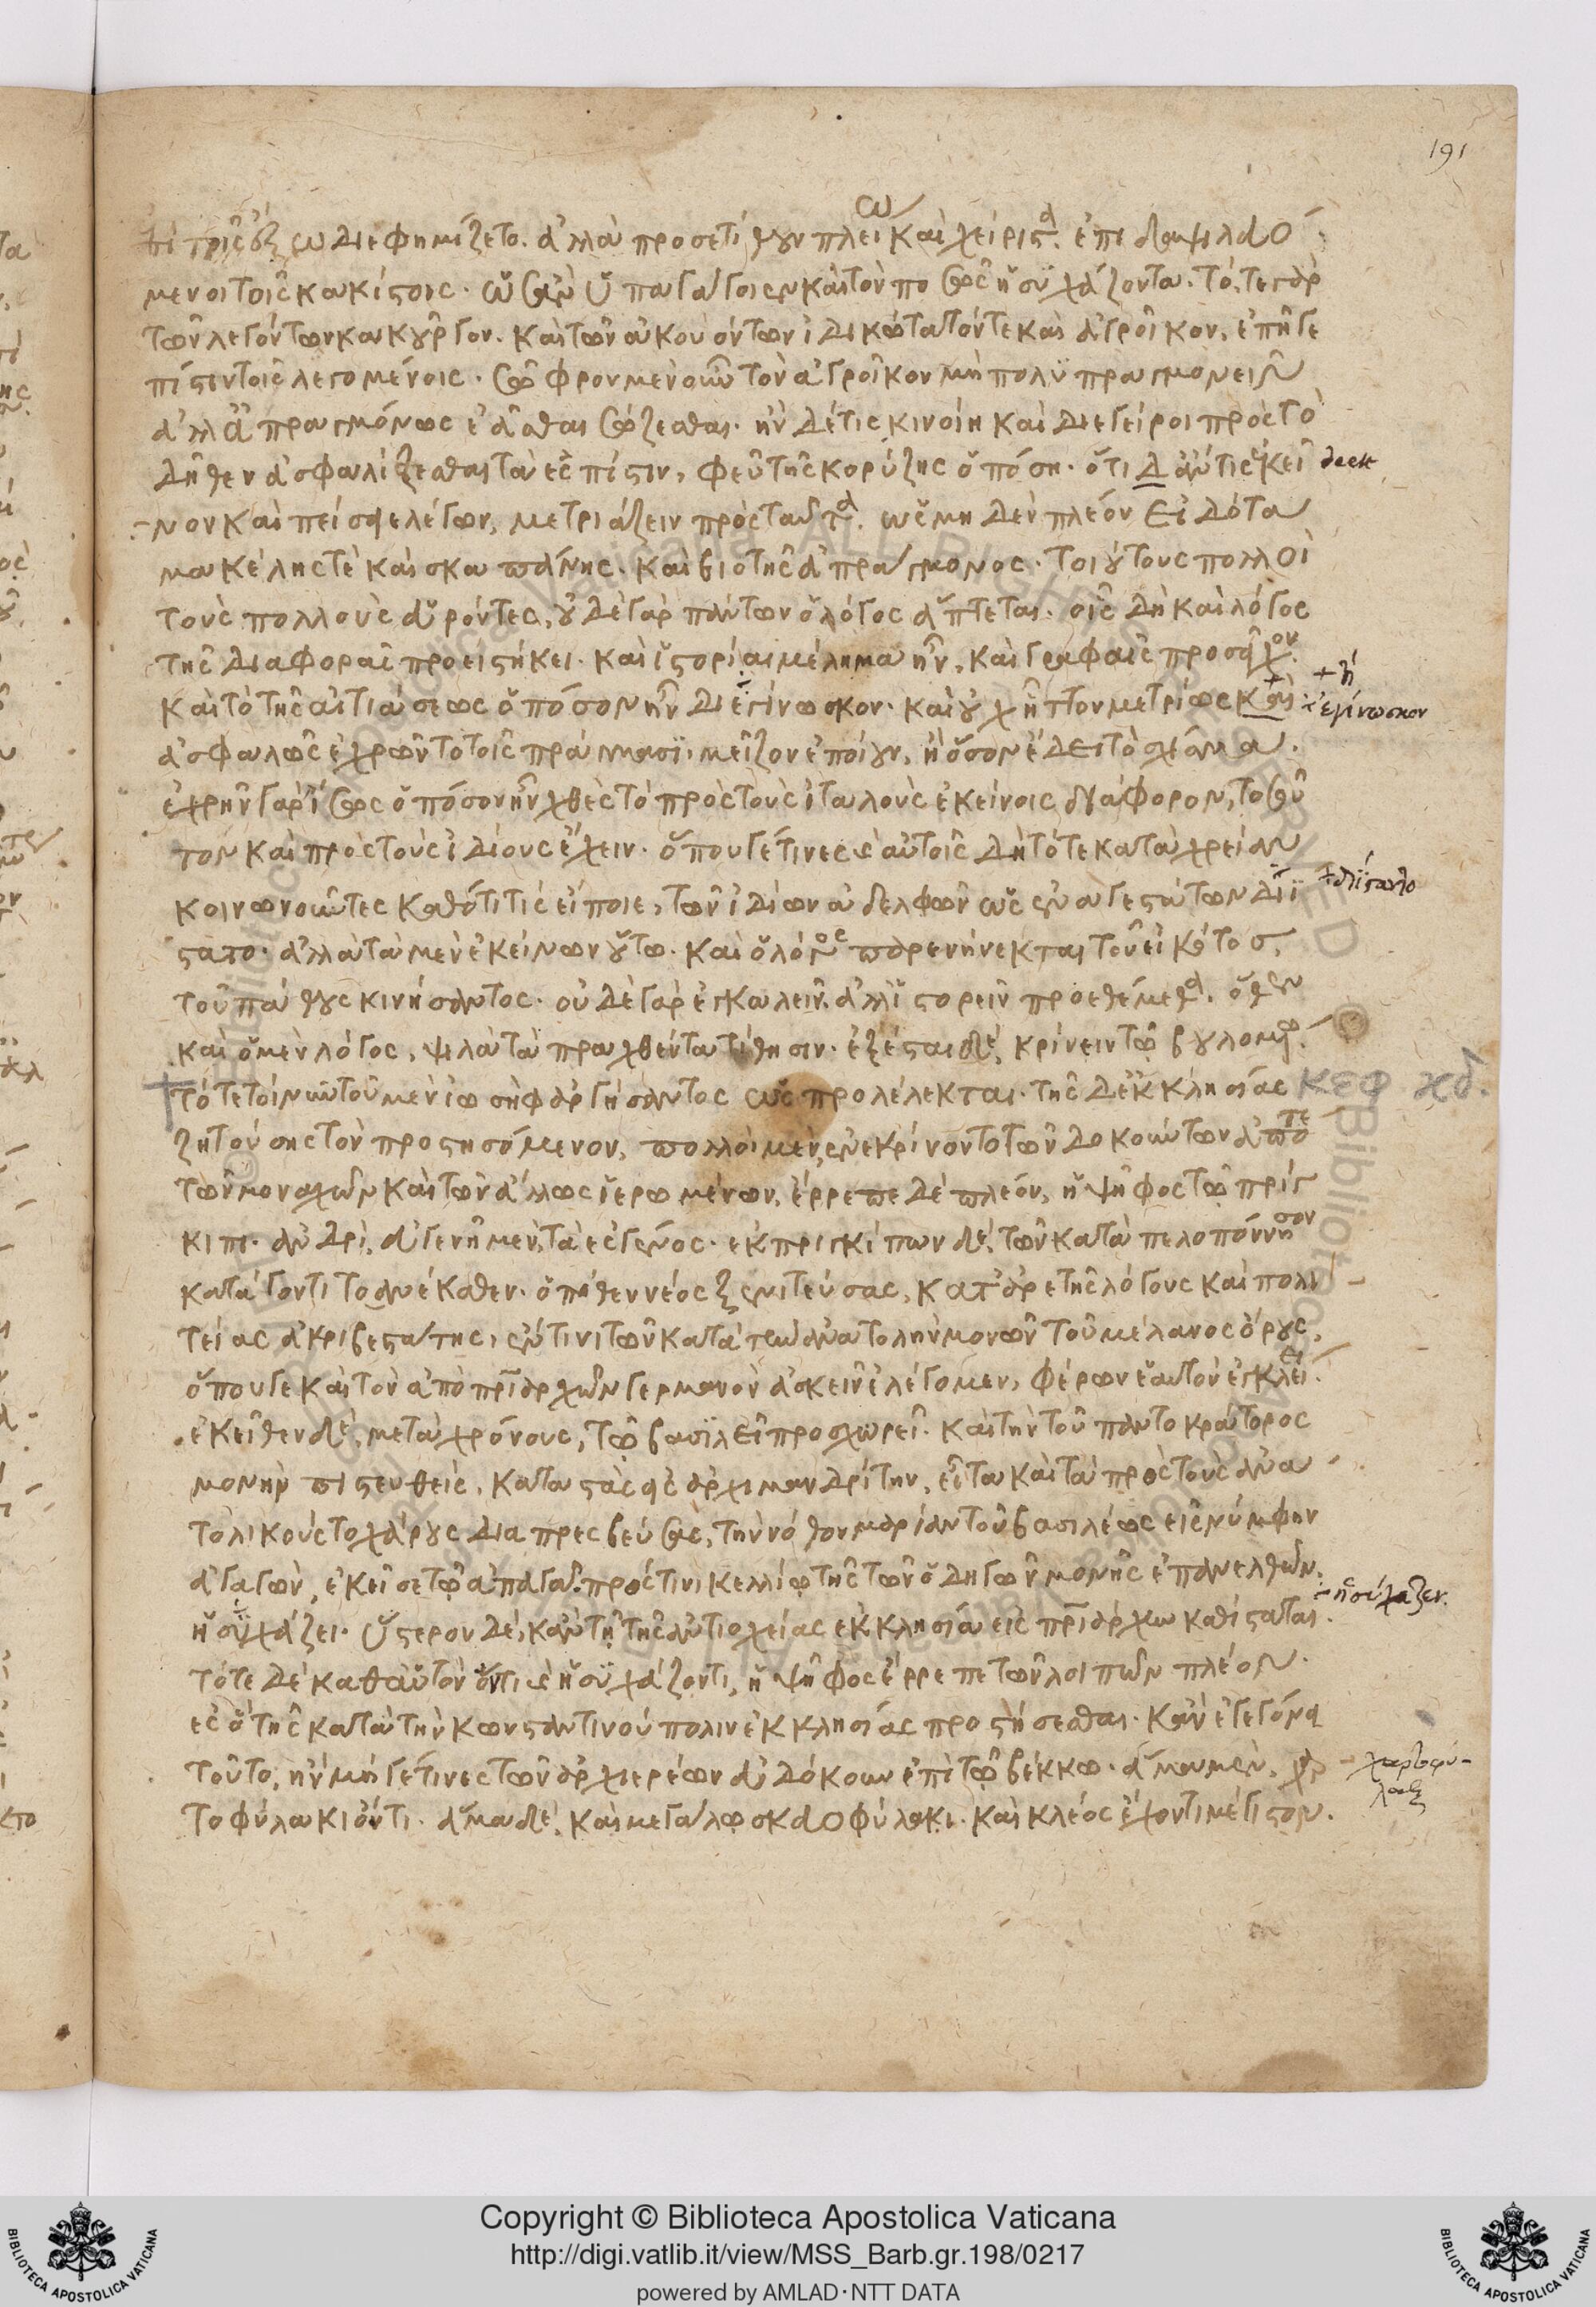 191
διεφημίζετο. ἀλλὰ προσετίθουν πλείω καὶ χείριστα. ἐπιδαψιλευό
μενοι τοῖς κακίστοις. ὡς ἂν ὑπαγάγοιεν καὶ τόν πως ἡσυχάζοντα. τό, τε γὰρ
τῶν λεγόντων κακοῦργον. καὶ τῶν ἀκουόντων ἰδικώτατόν τε καὶ ἄγροικον, ἐπῆγε
πίστιν τοῖς λεγομένοις. σωφρονοῦν μὲν τὸν ἄγροικον μὴ πολυπραγμονεῖν
ἀλλ' ἀπραγμόνως ἐᾶσθαι σώζεσθαι. ἢν δέ τις κινοίη καὶ διεγείροι πρὸς τὸ
δῆθεν ἀσφαλίζεσθαι τὰ ἐς πίστιν, φεῦ τῆς κορύζης ὁπόση. ὅτι δ' ἄν τις ἐκεῖ
νον καὶ πείσῃ λέγων, μετριάζειν πρὸς ταῦτα. ὡς μηδὲν πλέον εἰδότα
μακέλης τὲ καὶ σκαπάνης. καὶ βιοτῆς ἀπράγμονος. τοιούτους πολλοὶ
τοὺς πολλοὺς εὑρόντες, οὐδὲ γὰρ πάντων ὁ λόγος ἅπτεται. οἷς δὴ καὶ λόγος
τῆς διαφορᾶς προειστήκει. καὶ ἱστορίαι μέλημα ἦν, καὶ γραφαῖς προσεῖχον.
καὶ τὸ τῆς αἰτιάσεως ὁπόσον ἦν διεγίνωσκον. καὶ οὐχ ἧττον μετρίως καὶ
ἀσφαλῶς ἐχρῶντο τοῖς πράγμασι. μεῖζον ἐποίουν, ἢ ὅσον ἔδει τὸ σχίσμα.
ἐχρῆν γὰρ ἴσως ὁπόσον ἦν χθὲς τὸ πρὸς τοὺς ἰταλοὺς ἐκείνοις διάφορον, τοσοῦ
τον καὶ πρὸς τοὺς ἰδίους ἔχειν. ὅπου γέ τινες αὐτοῖς δὴ τότε κατὰ χρείαν
κοινωνοῦντες καθότι τίς εἴποιε, τῶν ἰδίων ἀδελφῶν ὡς ἐναγεστάτων διί
στατο. ἀλλὰ τὰ μὲν ἐκείνων οὕτω. καὶ ὁ λόγος παρενήνεκται τοῦ εἰκότος,
τοῦ πάθους κινήσαντος. οὐδὲ γὰρ ἐγκαλεῖν, ἀλλ' ἱστορεῖν προεθέμεθα. ὅθεν
καὶ ὁ μὲν λόγος, ψιλὰ τὰ πραχθέντα τίθησιν. ἐξέσται δὲ, κρίνειν τῷ βουλομένῳ.
τότε τοίνυν τοῦ μὲν ἰωσὴφ ἀργήσαντος ὡς προλέλεκται. τῆς δ' ἐκκλησίας κεφ κδ.
ζητούσης τὸν προστησόμενον, πολλοὶ μὲν, ἐνεκρίνοντο τῶν δοκούντων ἀπό τε
τῶν μοναχῶν καὶ τῶν ἄλλως ἱερωμένων, ἔρρεπε δὲ πλέον, ἡ ψῆφος τῷ πρίγ
κιπι. ἀνδρὶ, ἀγενῆ μὲν, τὰ ἐς γένος. ἐκ πριγκίπων δὲ, τῶν κατὰ πελοπόννησον
κατάγοντι τὸ ἀνέκαθεν. ὁπόθεν νέος ξενιτεύσας, κατ' ἀρετῆς λόγους καὶ πολι
τείας ἀκριβεστάτης, ἔν τινι τῶν κατὰ τὴν ἀνατολὴν μονῶν τοῦ μέλανος ὄρους,
ὅπου γε καὶ τὸν ἀπὸ πατριαρχῶν γερμανὸν ἀσκεῖν ἐλέγομεν, φέρων ἑαυτὸν ἐγκλείει.
ἐκεῖθεν δὲ, μετὰ χρόνους, τῷ βασιλεῖ προσχωρεῖ. καὶ τὴν τοῦ παντοκράτορος
μονὴν πιστευθεὶς, καταστὰς εἰς ἀρχιμανδρίτην, εἶτα καὶ τὰ πρὸς τοὺς ἀνα
τολικοὺς τοχάρους διαπρεσβεύσας, τὴν νόθον μαρίαν τοῦ βασιλέως εἰς νύμφην
ἀγαγὼν, ἐκεῖσε τῷ ἀπαγᾶ. πρός τινι κελλίῳ τῆς τῶν ὁδηγῶν μονῆς ἐπανελθὼν,
ἡσυχάζει. ὕστερον δὲ, κἀν τῇ τῆς ἀντιοχείας ἐκκλησίᾳ εἰς πατριάρχην καθίσταται.
τότε δὲ καθ' αὑτὸν ὄντι ἡσυχάζοντι, ἡ ψῆφος ἔρρεπε τῶν λοιπῶν πλέον.
ἐς ὃ τῆς κατὰ τὴν κωνσταντινούπολιν ἐκκλησίας προστήσεσθαι. κἂν ἐγεγόνει
τοῦτο, ἢν μή γέ τινες τῶν ἀρχιερέων εὐδόκουν ἐπὶ τῷ βέκκῳ. ἅμα μὲν, χαρ
τοφύλακι ὄντι. ἅμα δὲ, καὶ μεγάλῳ σκευοφύλακι. καὶ κλέος ἔχοντι μέγιστον.
ἐγίνωσκον
διίστατο
ἡσύχαζεν.
χαρτοφύ-
λαξ
Copyright © Biblioteca Apostolica Vaticana
http://digi.vatlib.it/view/MSS_Barb.gr.198/0217
powered by AMLAD·NTT DATA
BIBLIOTECA APOSTOLICA VATICANA
BIBLIOTECA APOSTOLICA VATICANA